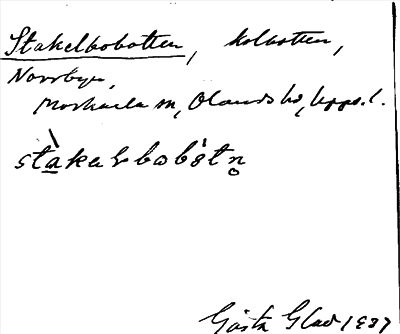 Stakelbobotten, kolbotten,
Norrbyn,
Morkarla sn, Olands hd, Upps. l.
stàkalbobòtn̥
Gösta Glad 1937